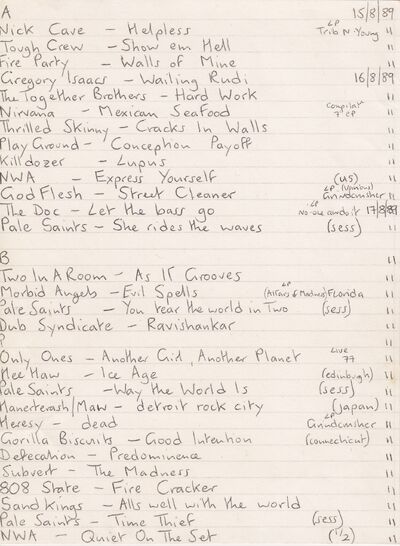 A 15/8/89
Nick Cave - Helpless LP Trib N. Young "
Tough Crew - Show em Hell "
Fire Party - Walls of Mine "
Gregory Isaacs - Wailing Rudi 16/8/89
The Together Brothers - Hard Work "
Nirvana - Mexican Seafood compilat 7" EP "
Thrilled Skinny - Cracks In Walls "
Play Ground - Conception Payoff "
Killdozer - Lupus "
NWA - Express Yourself (US) "
God Flesh - Street Cleaner LP (Various) Grindcrusher "
The Doc - Let the bass go LP No-one can do it 17/8/89
Pale Saints - She rides the waves (sess) "
B "
Two In A Room - As It Grooves "
Morbid Angels - Evil Spells LP (Altars of Madnes) Florida "
Pale Saints - You tear the world in Two (sess) "
Dub Syndicate - Ravishankar "
? "
Only Ones - Another Girl, Another Planet Live 77 "
Hee Haw - Ice Age (edinburgh) "
Pale Saints - Way the World Is (sess) "
/Maw - detroit rock city (Japan) "
Heresy - dead LP Grindcrusher "
Gorilla Biscuits - Good Intention (connecticut) "
Defecation - Predominence "
Subvert - The Madness "
808 State - Fire Cracker "
Sand Kings - Alls well with the world "
Pale Saints - Time Thief (sess) "
NWA - Quiet On The Set (1/2) "